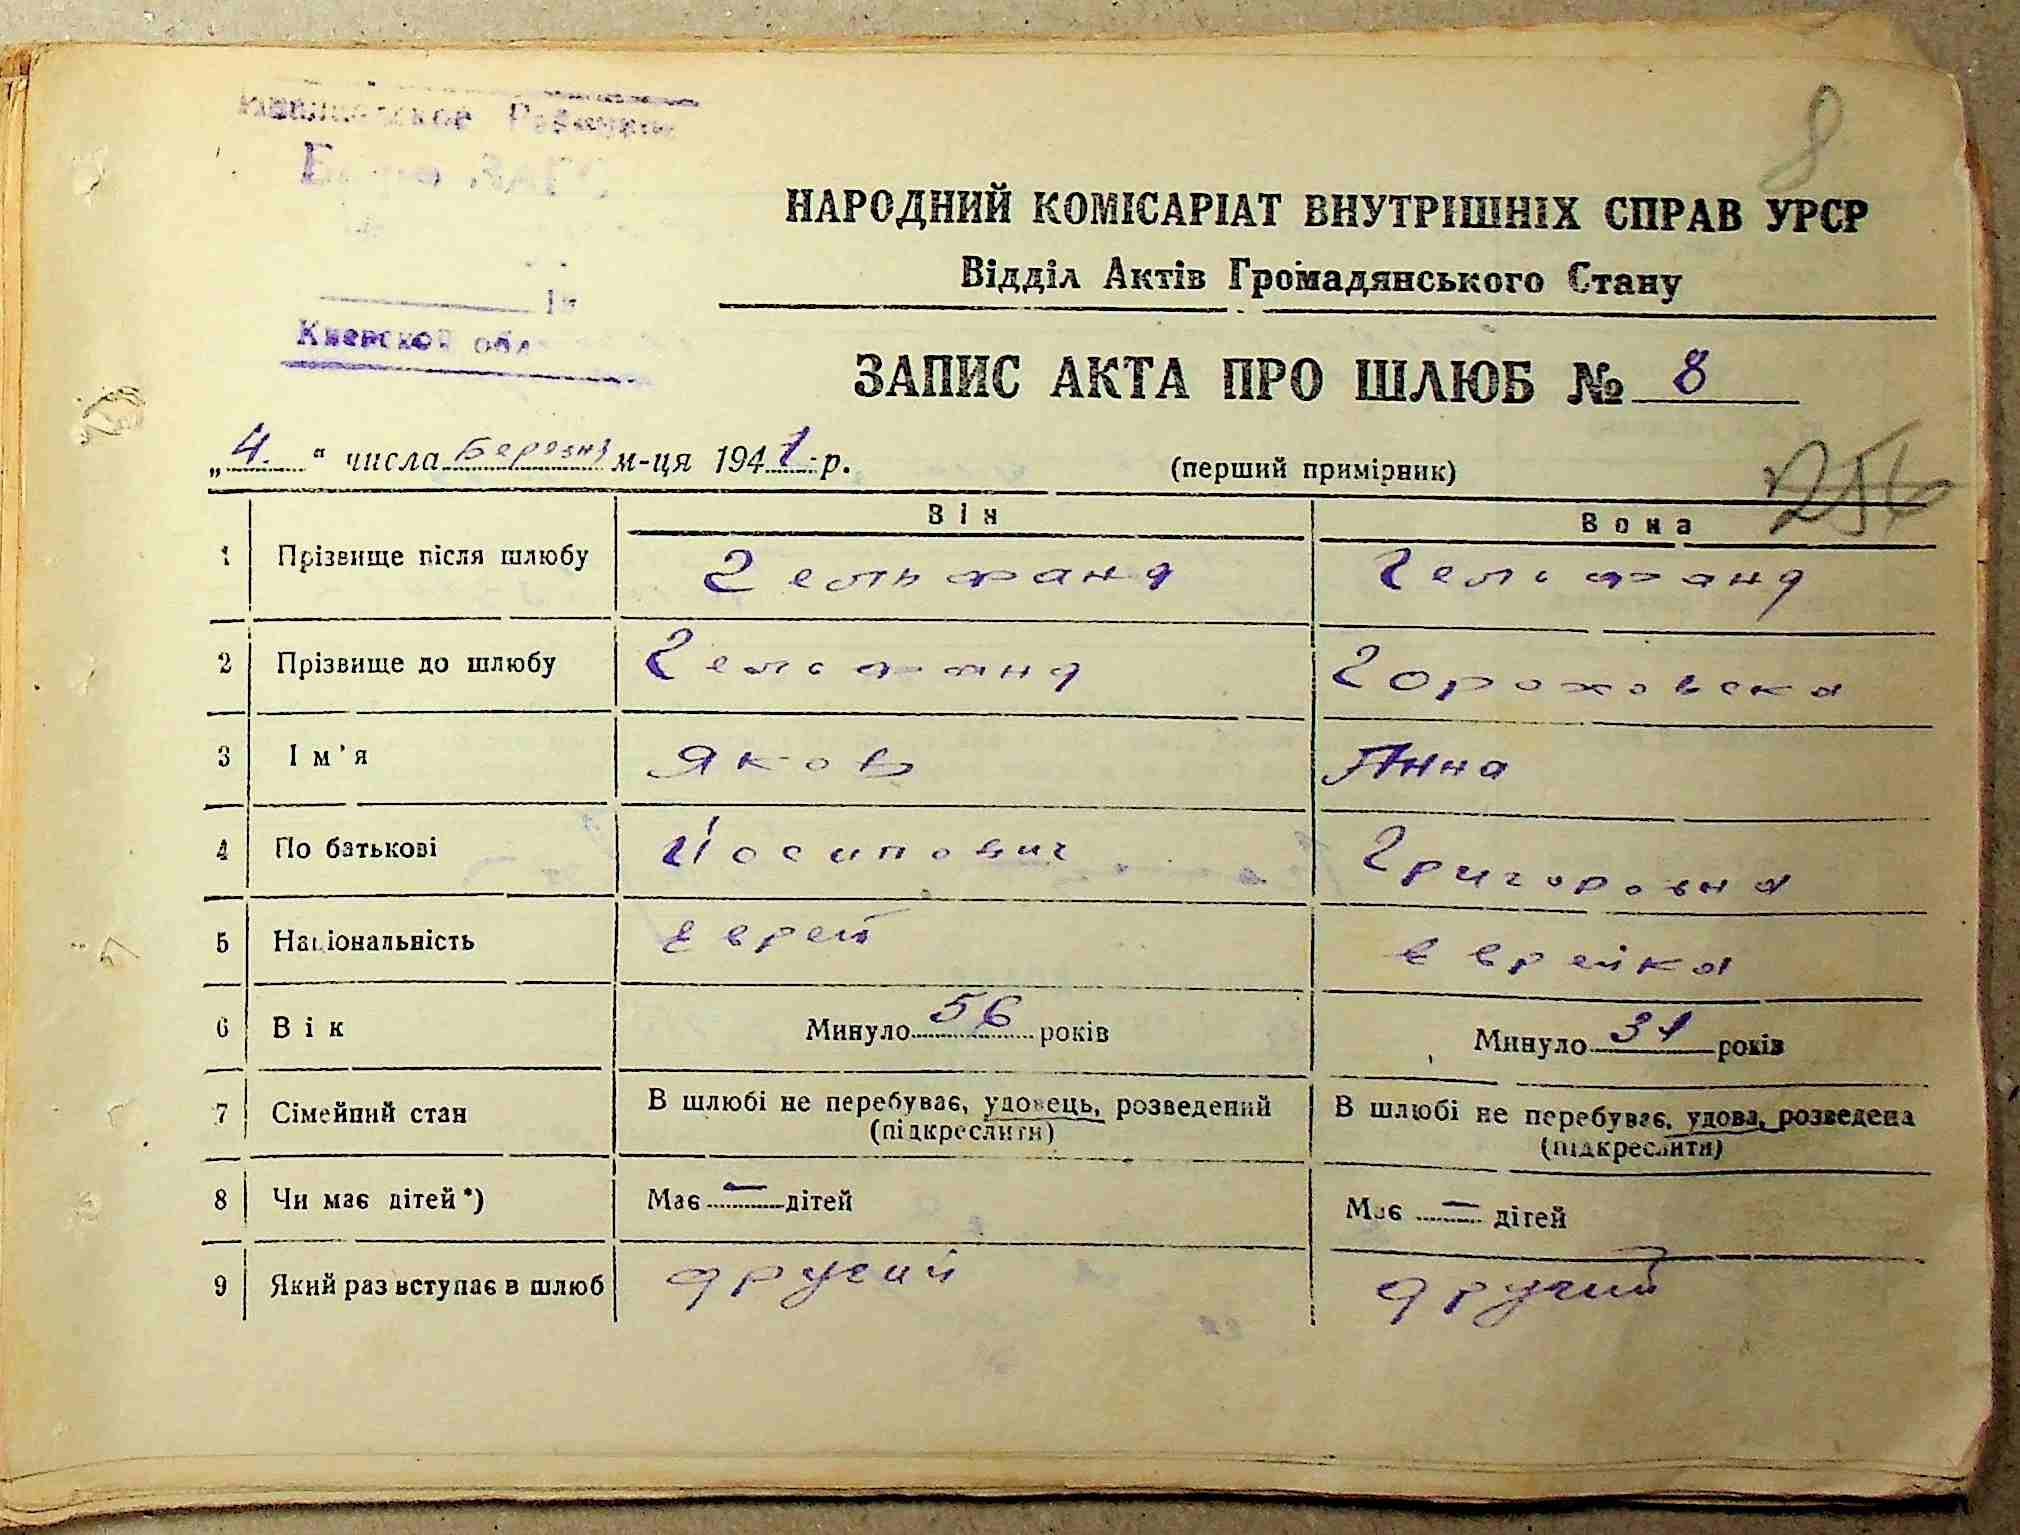 Бюро ЗАГС
Киевской обл
8
НАРОДНИЙ КОМІСАРІАТ ВНУТРІШНІХ СПРАВ УРСР
Відділ Актів Громадянського Стану
ЗАПИС АКТА ПРО ШЛЮБ № 8
„4.“ числа Березня м-ця 1941 р. (перший примірник)
Він Вона
1 Прізвище після шлюбу Гельфанд Гельфанд
2 Прізвище до шлюбу Гельфанд Гороховска
3 Ім'я Яков Анна
4 По батькові Йосипович Григоровна
5 Національність Еврей Еврейка
6 Вік Минуло 56 років Минуло 31 років
7 Сімейний стан В шлюбі не перебуває, удовець, розведений В шлюбі не перебуває, удова, розведена
(підкреслити) (підкреслити)
8 Чи має дітей*) Має — дітей Має — дітей
9 Який раз вступає в шлюб другий другий